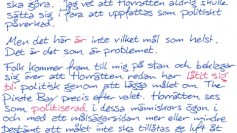 ska göra. Jag vet att Hovrätten aldrig skulle
sätta sig i fara att uppfattas som politiskt
påverkad.
Men det här är inte vilket mål som helst.
Det är det som är problemet.
Folk kommer fram till mig på stan och beklagar
sig över att Hovrätten redan har låtit sig
bli politisk genom att lägga målet om The
Pirate Bay precis efter valet. Hovrätten ses
som politiserad i dessa människors ögon i
och med ett målsägarsidan mer eller mindre
bestämt att målet inte ska tillåtas få luft åt